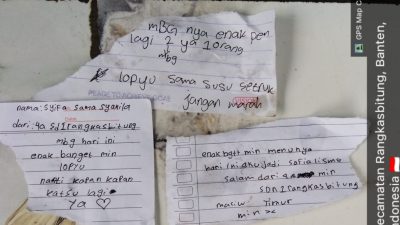 MBG nya enak pen
lagi 2 ya 1 orang
mbg
lopyu sama susu setruk
READY TO
jangan marah
nama: syifa sama syakila
dari: 4a sd 1 rangkasbitung
mbg hari ini
enak banget min
lopyu
nanti kapan kapan
katsu lagi
ya ♡
enak bgtt min menunya
hari ini akujadi sosialisme
salam dari 4 min
SDN 2 rangkasbitung
timur
min
GPS Map C
Kecamatan Rangkasbitung, Banten,
Indonesia 🇮🇩